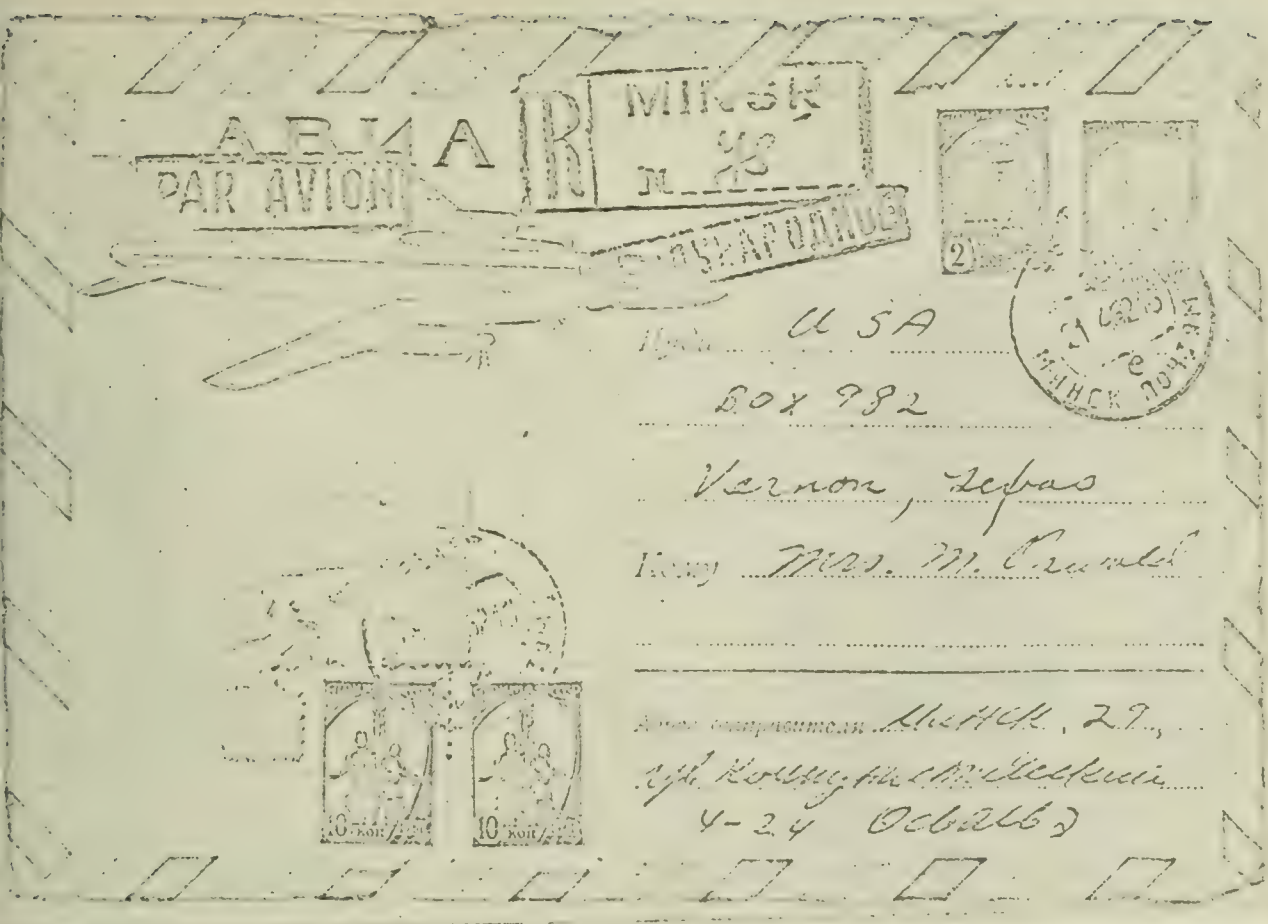 АВИА
PAR AVION
R MINSK
N
2
Куда USA
МИНСК ПОЧТАМТ
21
Box 982
Vernon, Texas
Кому Mrs. M. Oswald
Адрес отправителя Минск, 29,
ул. Коммунистическая
4-24 Освальд
10 коп
10 коп